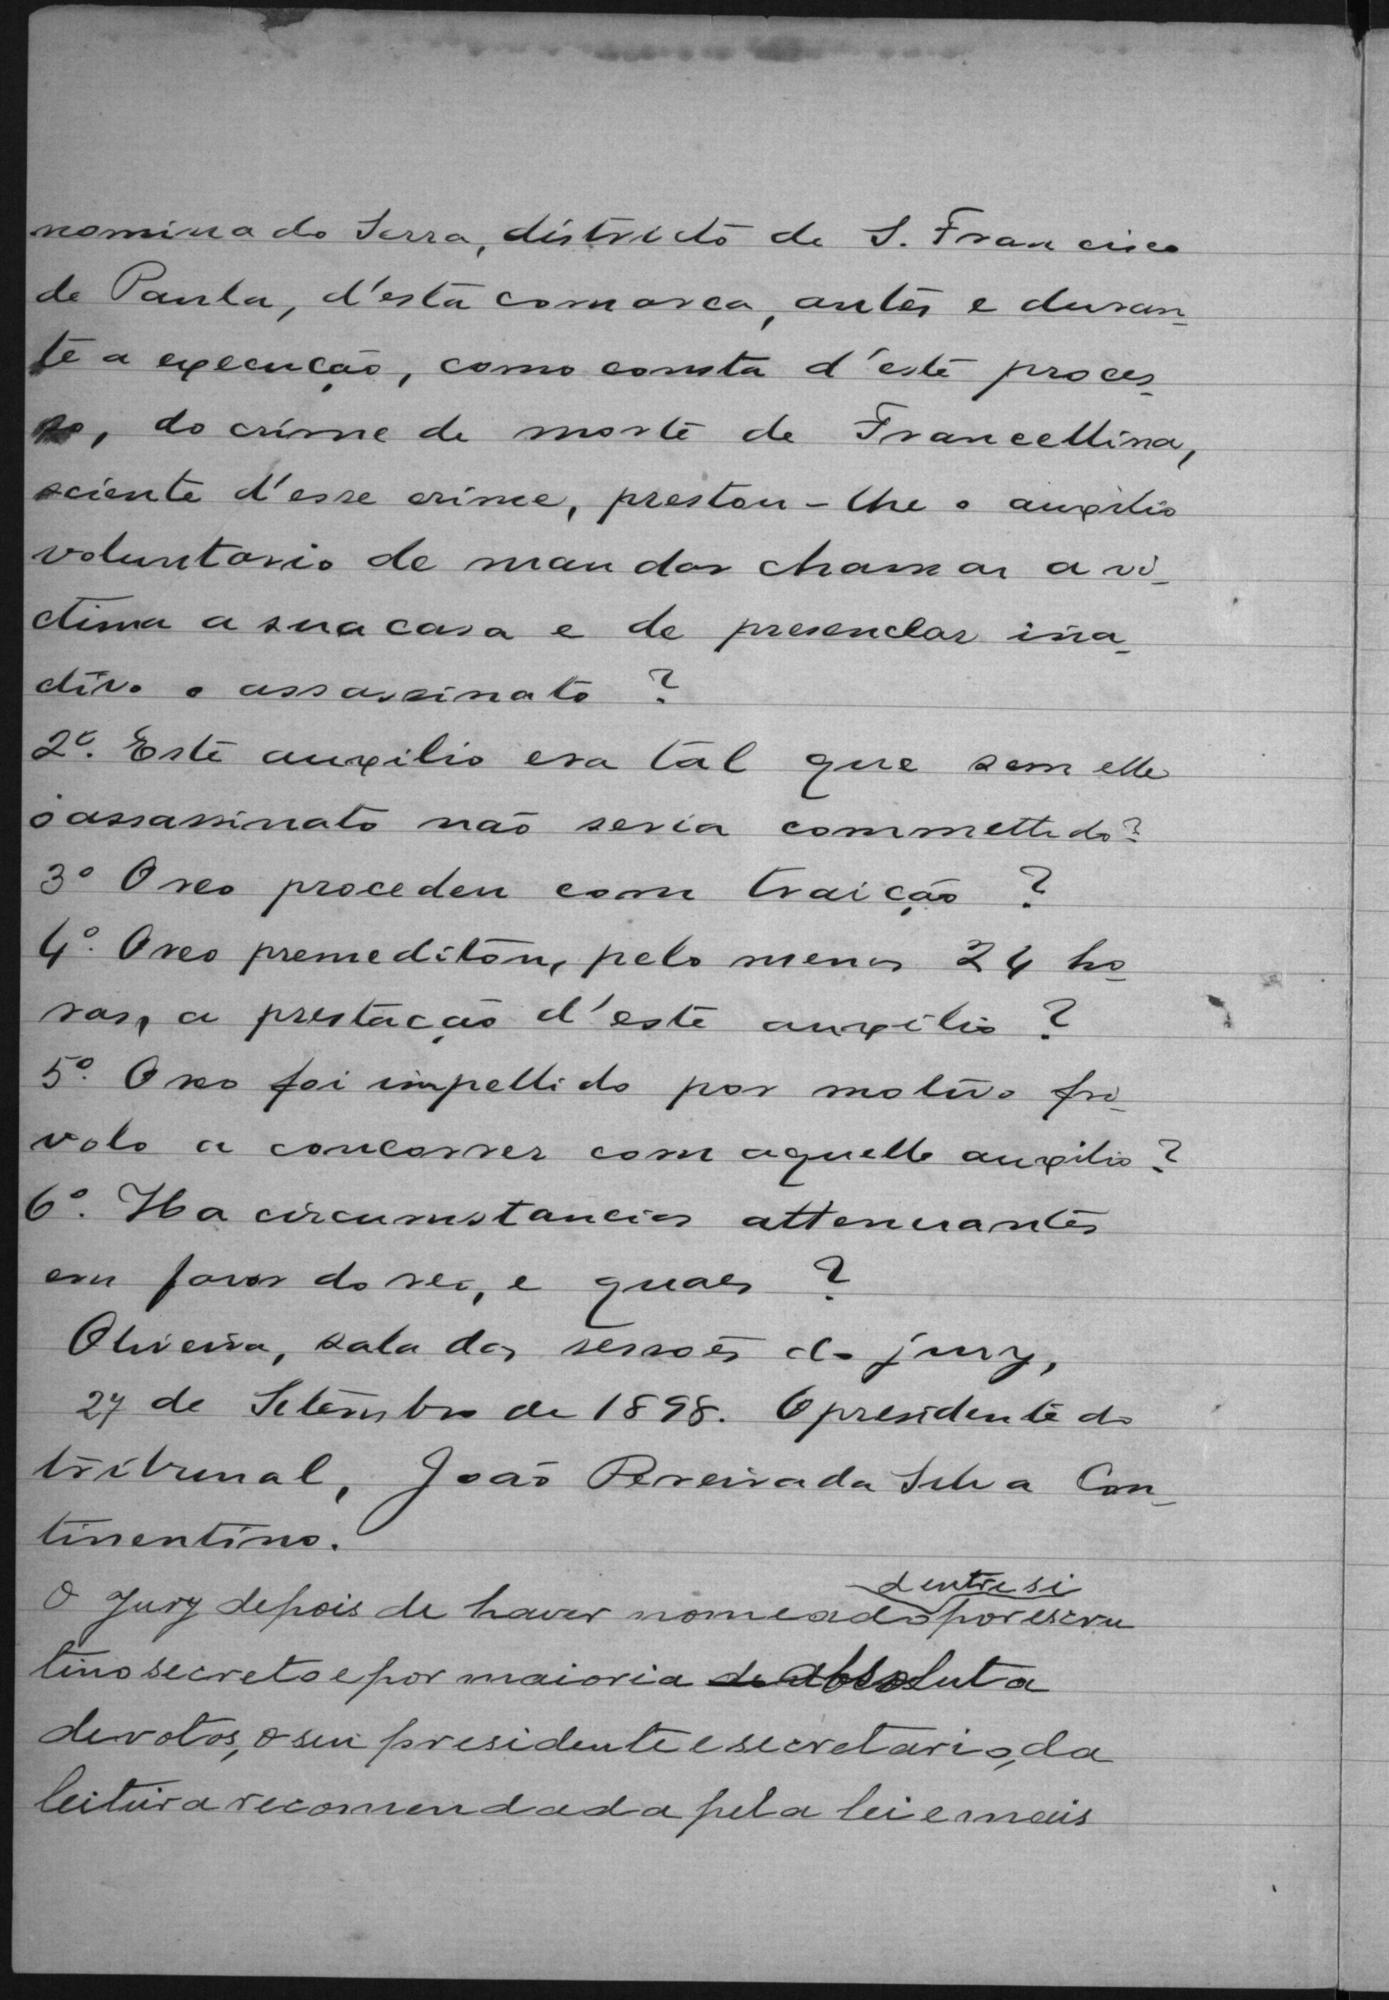 nominado Serra, districto de S. Francisco
de Paula, d'esta comarca, antes e duran-
te a execução, como consta d'este proces-
so, do crime de morte de Francellina,
sciente d'esse crime, prestou-lhe o auxilio
voluntario de mandar chamar a vi-
ctima a sua casa e de presenciar ina-
ctivo o assassinato ?
2º. Este auxilio era tal que sem elle
o assassinato não seria commettido?
3º O reo procedeu com traição ?
4º. O reo premeditou, pelo menos 24 ho-
ras, a prestação d'este auxilio ?
5º. O reo foi impellido por motivo fri-
volo a concorrer com aquelle auxilio ?
6º. Ha circumstancias attenuantes
em favor do reo, e quaes ?
Oliveira, sala das sessões do jury,
27 de Setembro de 1898. O presidente do
tribunal, João Pereira da Silva Con-
tinentino.
dentre si
O Jury depois de haver nomeado por escru
tinio secreto e por maioria absoluta
de votos, o seu presidente e secretario, da
leitura recomendada pela lei e mais